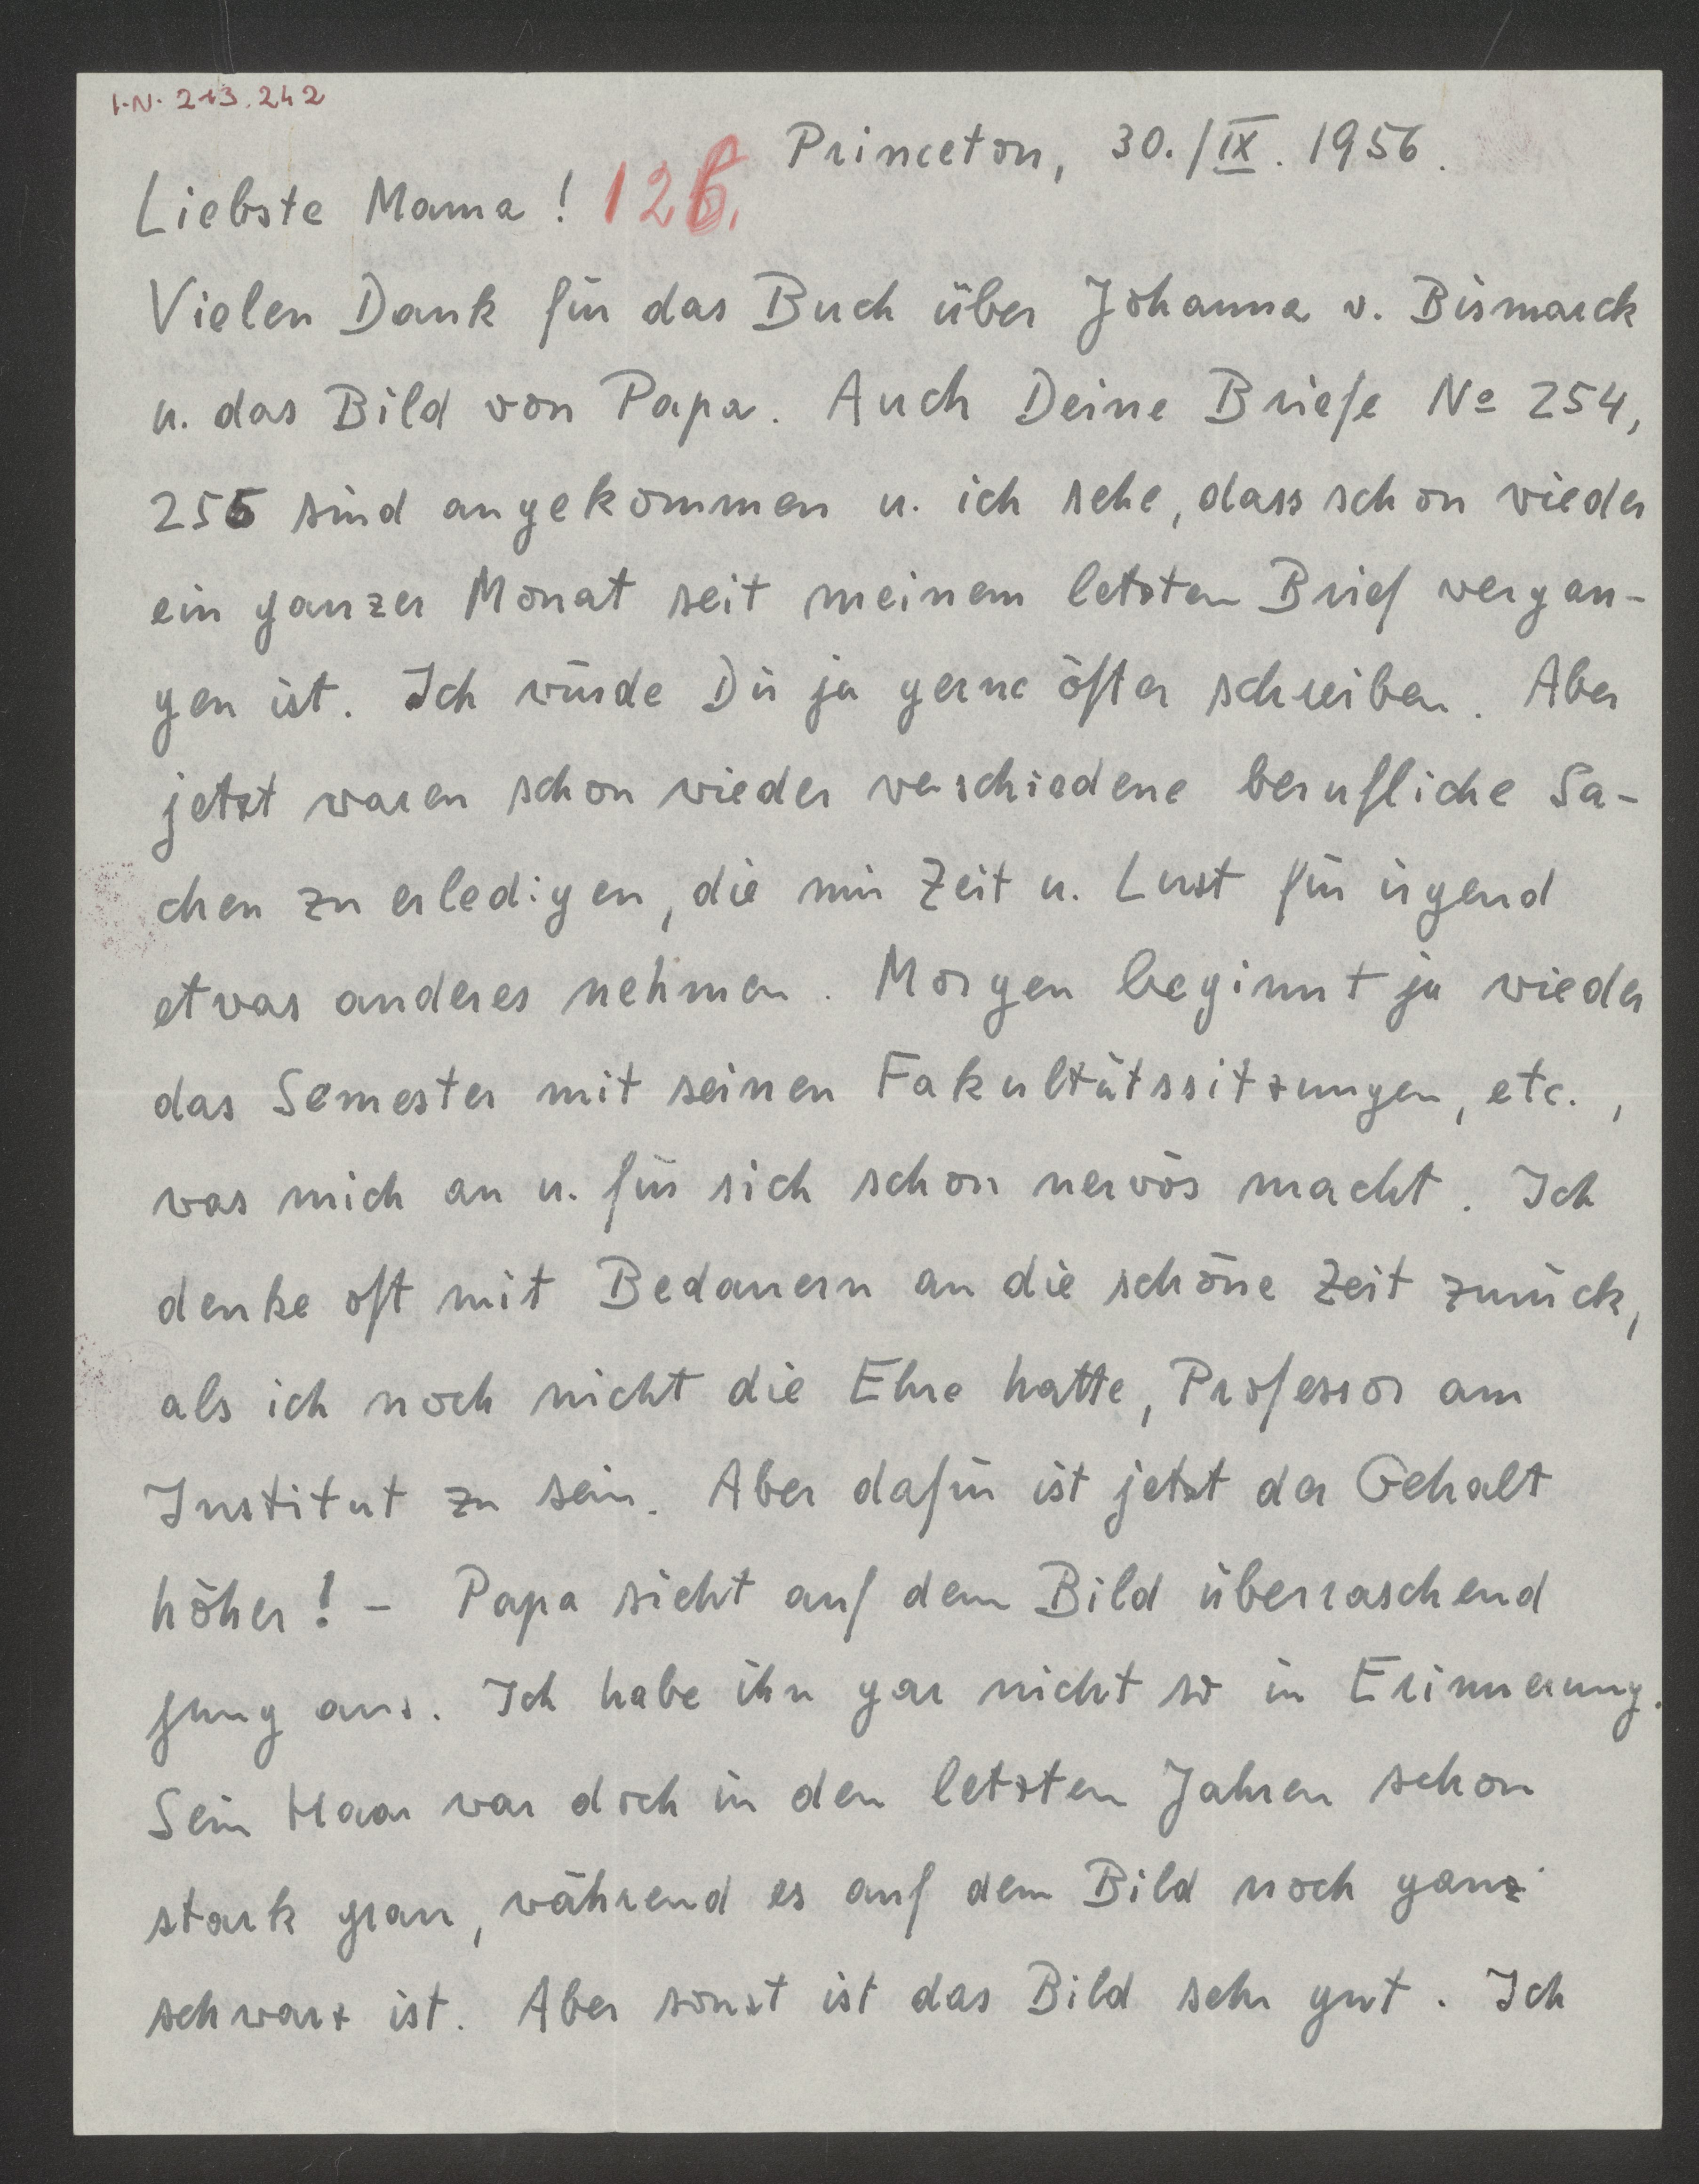 I.N. 213.242
Princeton, 30./IX. 1956.
Liebste Mama! 126.
Vielen Dank für das Buch über Johanna v. Bismarck
u. das Bild von Papa. Auch Deine Briefe No 254,
255 sind angekommen u. ich sehe, dass schon wieder
ein ganzer Monat seit meinem letzten Brief vergan-
gen ist. Ich würde Dir ja gerne öfter schreiben. Aber
jetzt waren schon wieder verschiedene berufliche Sa-
chen zu erledigen, die mir Zeit u. Lust für irgend
etwas anderes nehmen. Morgen beginnt ja wieder
das Semester mit seinen Fakultätssitzungen, etc.,
was mich an u. für sich schon nervös macht. Ich
denke oft mit Bedauern an die schöne Zeit zurück,
als ich noch nicht die Ehre hatte, Professor am
Institut zu sein. Aber dafür ist jetzt der Gehalt
höher! – Papa sieht auf dem Bild überraschend
jung aus. Ich habe ihn gar nicht so in Erinnerung.
Sein Haar war doch in den letzten Jahren schon
stark grau, während es auf dem Bild noch ganz
schwarz ist. Aber sonst ist das Bild sehr gut. Ich